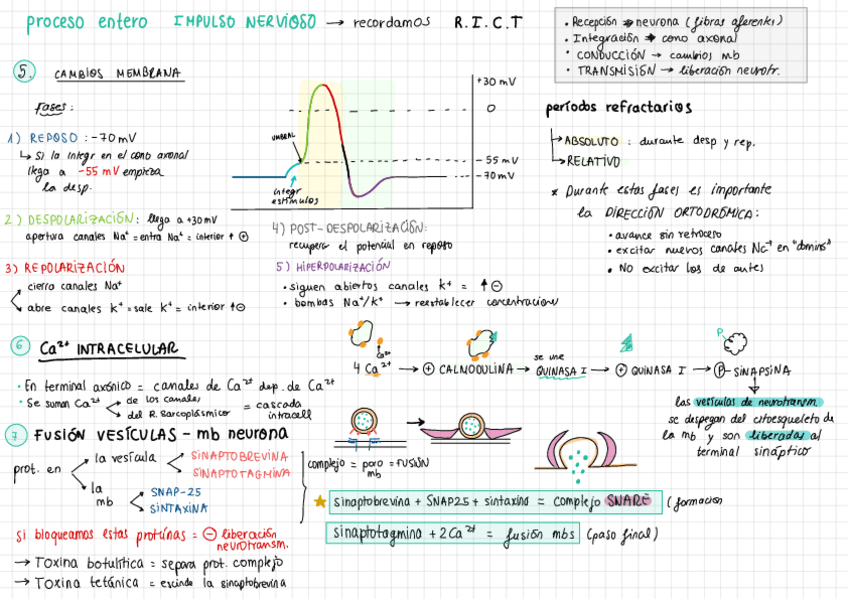 proceso entero IMPULSO NERVIOSO → recordamos R.I.C.T
• Recepción → neurona (fibras aferentes)
• Integración → cono axonal
• CONDUCCIÓN → cambios mb
• TRANSMISIÓN → liberación neurotr.
5. CAMBIOS MEMBRANA
fases:
1) REPOSO: -70 mV
↳ Si la integr en el cono axonal
llega a -55 mV empieza
la desp.
2) DESPOLARIZACIÓN: llega a +30 mV
apertura canales Na⁺ = entra Na⁺ = interior ↑ ⊕
3) REPOLARIZACIÓN
cierra canales Na⁺
abre canales K⁺ = sale K⁺ = interior ↑⊖
UMBRAL
integr
estímulos
+30 mV
0
-55 mV
-70 mV
4) POST-DESPOLARIZACIÓN:
recuperar el potencial en reposo
5) HIPERPOLARIZACIÓN
• siguen abiertos canales K⁺ = ↑⊖
• bombas Na⁺/K⁺ → reestablecer concentraciones
períodos refractarios
→ ABSOLUTO: durante desp y rep.
→ RELATIVO
* Durante estas fases es importante
la DIRECCIÓN ORTODRÓMICA:
• avance sin retroceso
• excitar nuevos canales Na⁺ en "dominó"
• NO excitar los de antes
6 Ca²⁺ INTRACELULAR
• En terminal axónico = canales de Ca²⁺ dep. de Ca²⁺
• Se suman Ca²⁺
de los canales
del R. Sarcoplásmico
= cascada
intracell
Ca²⁺
P
4 Ca²⁺ → ⊕ CALMODULINA → se une QUINASA I → ⊕ QUINASA I → Ⓟ-SINAPSINA
las vesículas de neurotransm.
se despegan del citoesqueleto de
la mb y son liberadas al
terminal sináptico
7 FUSIÓN VESÍCULAS - mb neurona
prot. en
la vesícula
SINAPTOBREVINA
SINAPTOTAGMINA
la
mb
SNAP-25
SINTAXINA
complejo = poro = FUSIÓN
mb
sinaptobrevina + SNAP25 + sintaxina = complejo SNARE (formación
sinaptotagmina + 2Ca²⁺ = fusión mbs (paso final)
si bloqueamos estas proteínas = ⊖ liberación
neurotransm.
→ Toxina botulítica = separa prot. complejo
→ Toxina tetánica = escinde la sinaptobrevina